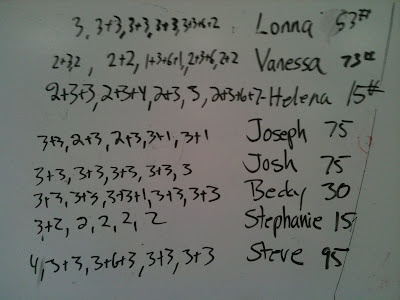 3, 3+3, 3+3, 3+3, 3+3+6+2 Lonna 53
2+3,2, 2+2, 1+3+6+1, 2+3+6, 2+2 Vanessa 73
2+3+3, 2+3+4, 2+3, 5, 2+3+6+2- Helena 15
3+3, 2+3, 2+3, 3+1, 3+1 Joseph 75
3+3, 3+3, 3+3, 3+3, 3 Josh 75
3+3, 3+3, 3+3+1, 3+3, 3+3 Becky 30
3+2, 2, 2, 2, 2 Stephanie 15
4, 3+3, 3+6+3, 3+3, 3+3 Steve 95